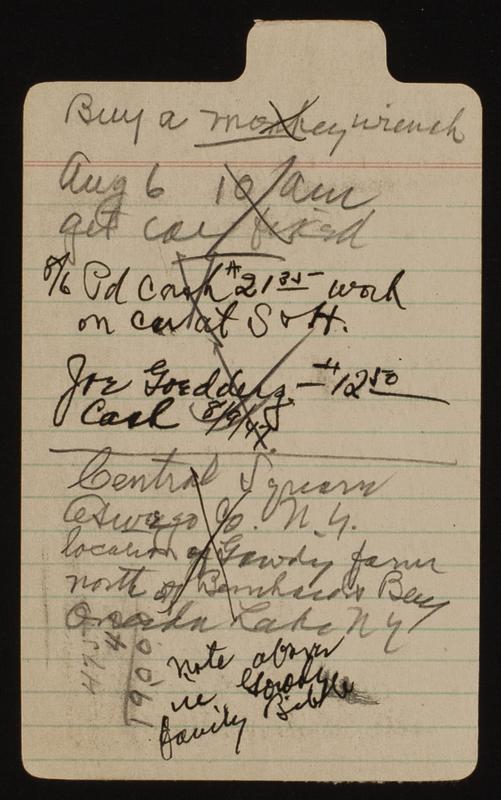 Buy a monkey wrench
Aug 6 10 am
get car fixed
8/6 Pd Cash #21 35 work
on car at S & H.
Joe Goedderz — #12 50
Cash 8/6/47.
Central Square
Oswego Co. N.Y.
location of Gowdy farm
north of Bernhards Bay
Oneida Lake NY
475
4
1900
note above
in Gowdy
family Bible